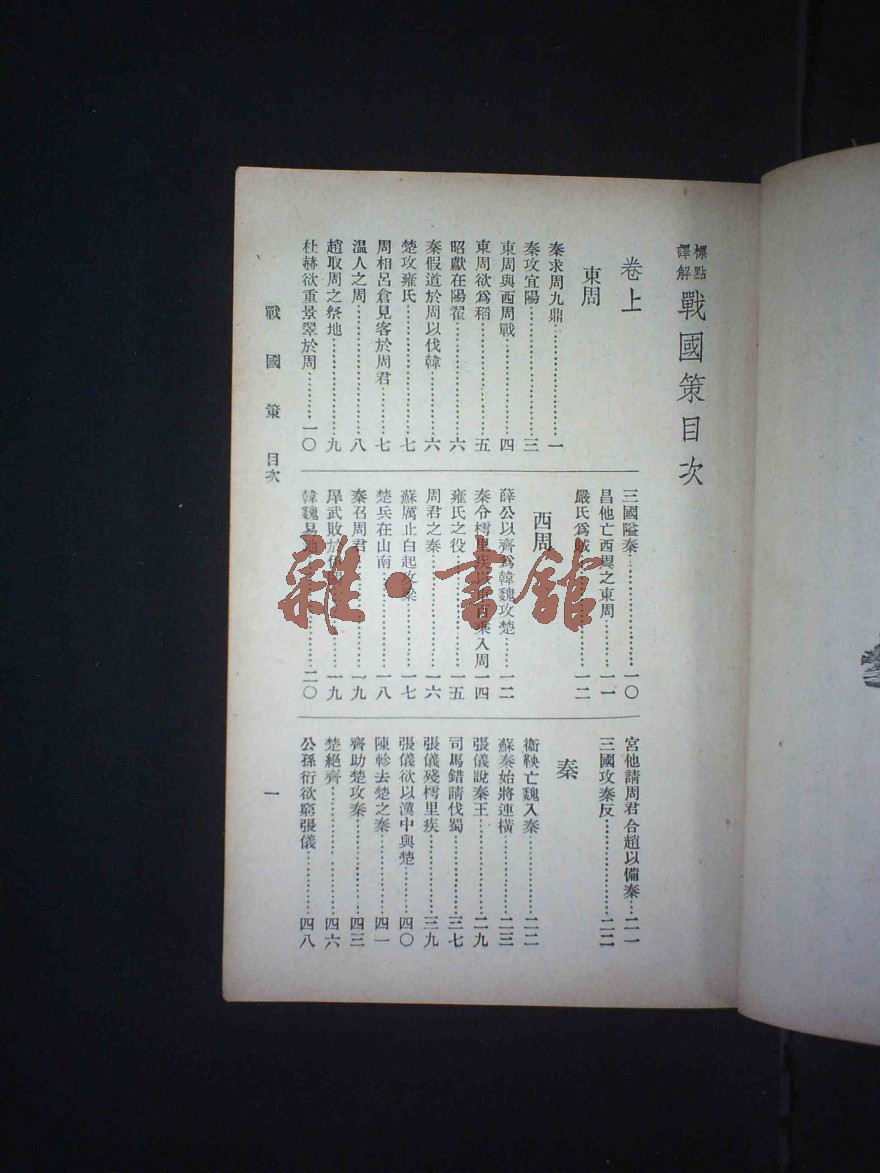 標點譯解 戰國策目次
卷上
東周
秦求周九鼎…………一
秦攻宜陽…………三
東周與西周戰…………四
東周欲爲稻…………五
昭獻在陽翟…………六
秦假道於周以伐韓…………六
楚攻雍氏…………七
周相呂倉見客於周君…………七
溫人之周…………八
趙取周之祭地…………九
杜赫欲重景翠於周…………一〇
三國隘秦…………一〇
昌他亡西周之東周…………一一
嚴氏爲賊…………一二
西周
薛公以齊爲韓魏攻楚…………一二
秦令樗里疾以車百乘入周一四
雍氏之役…………一五
周君之秦…………一六
蘇厲止白起攻梁…………一七
楚兵在山南…………一八
秦召周君…………一九
犀武敗於伊闕…………一九
韓魏易地…………二〇
宮他請周君合趙以備秦…二一
三國攻秦反…………二二
秦
衞鞅亡魏入秦…………二二
蘇秦始將連橫…………二三
張儀說秦王…………二九
司馬錯請伐蜀…………三七
張儀殘樗里疾…………三九
張儀欲以漢中與楚…………四〇
陳軫去楚之秦…………四一
齊助楚攻秦…………四三
楚絕齊…………四六
公孫衍欲窮張儀…………四八
戰國策 目次
一
雜·書館